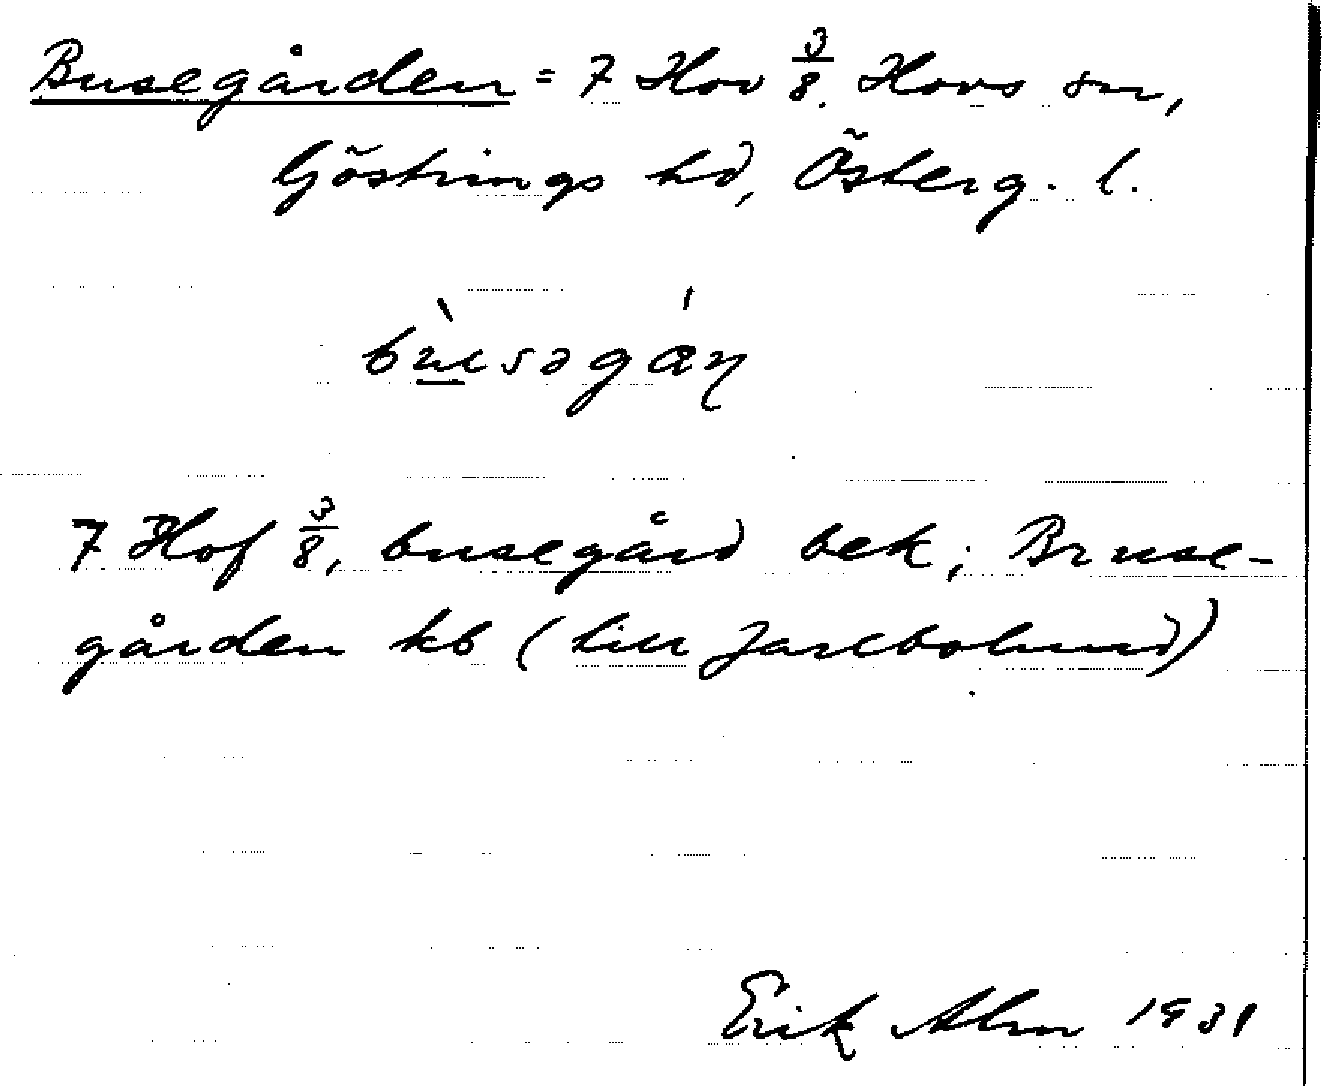 Busegården = 7 Hov 3/8. Hovs sn,
Göstrings hd, Österg. l.
7 Hof 3/8, busegård bek; Bruse-
gården kb (till Jarlbolund)
Erik Alm 1931